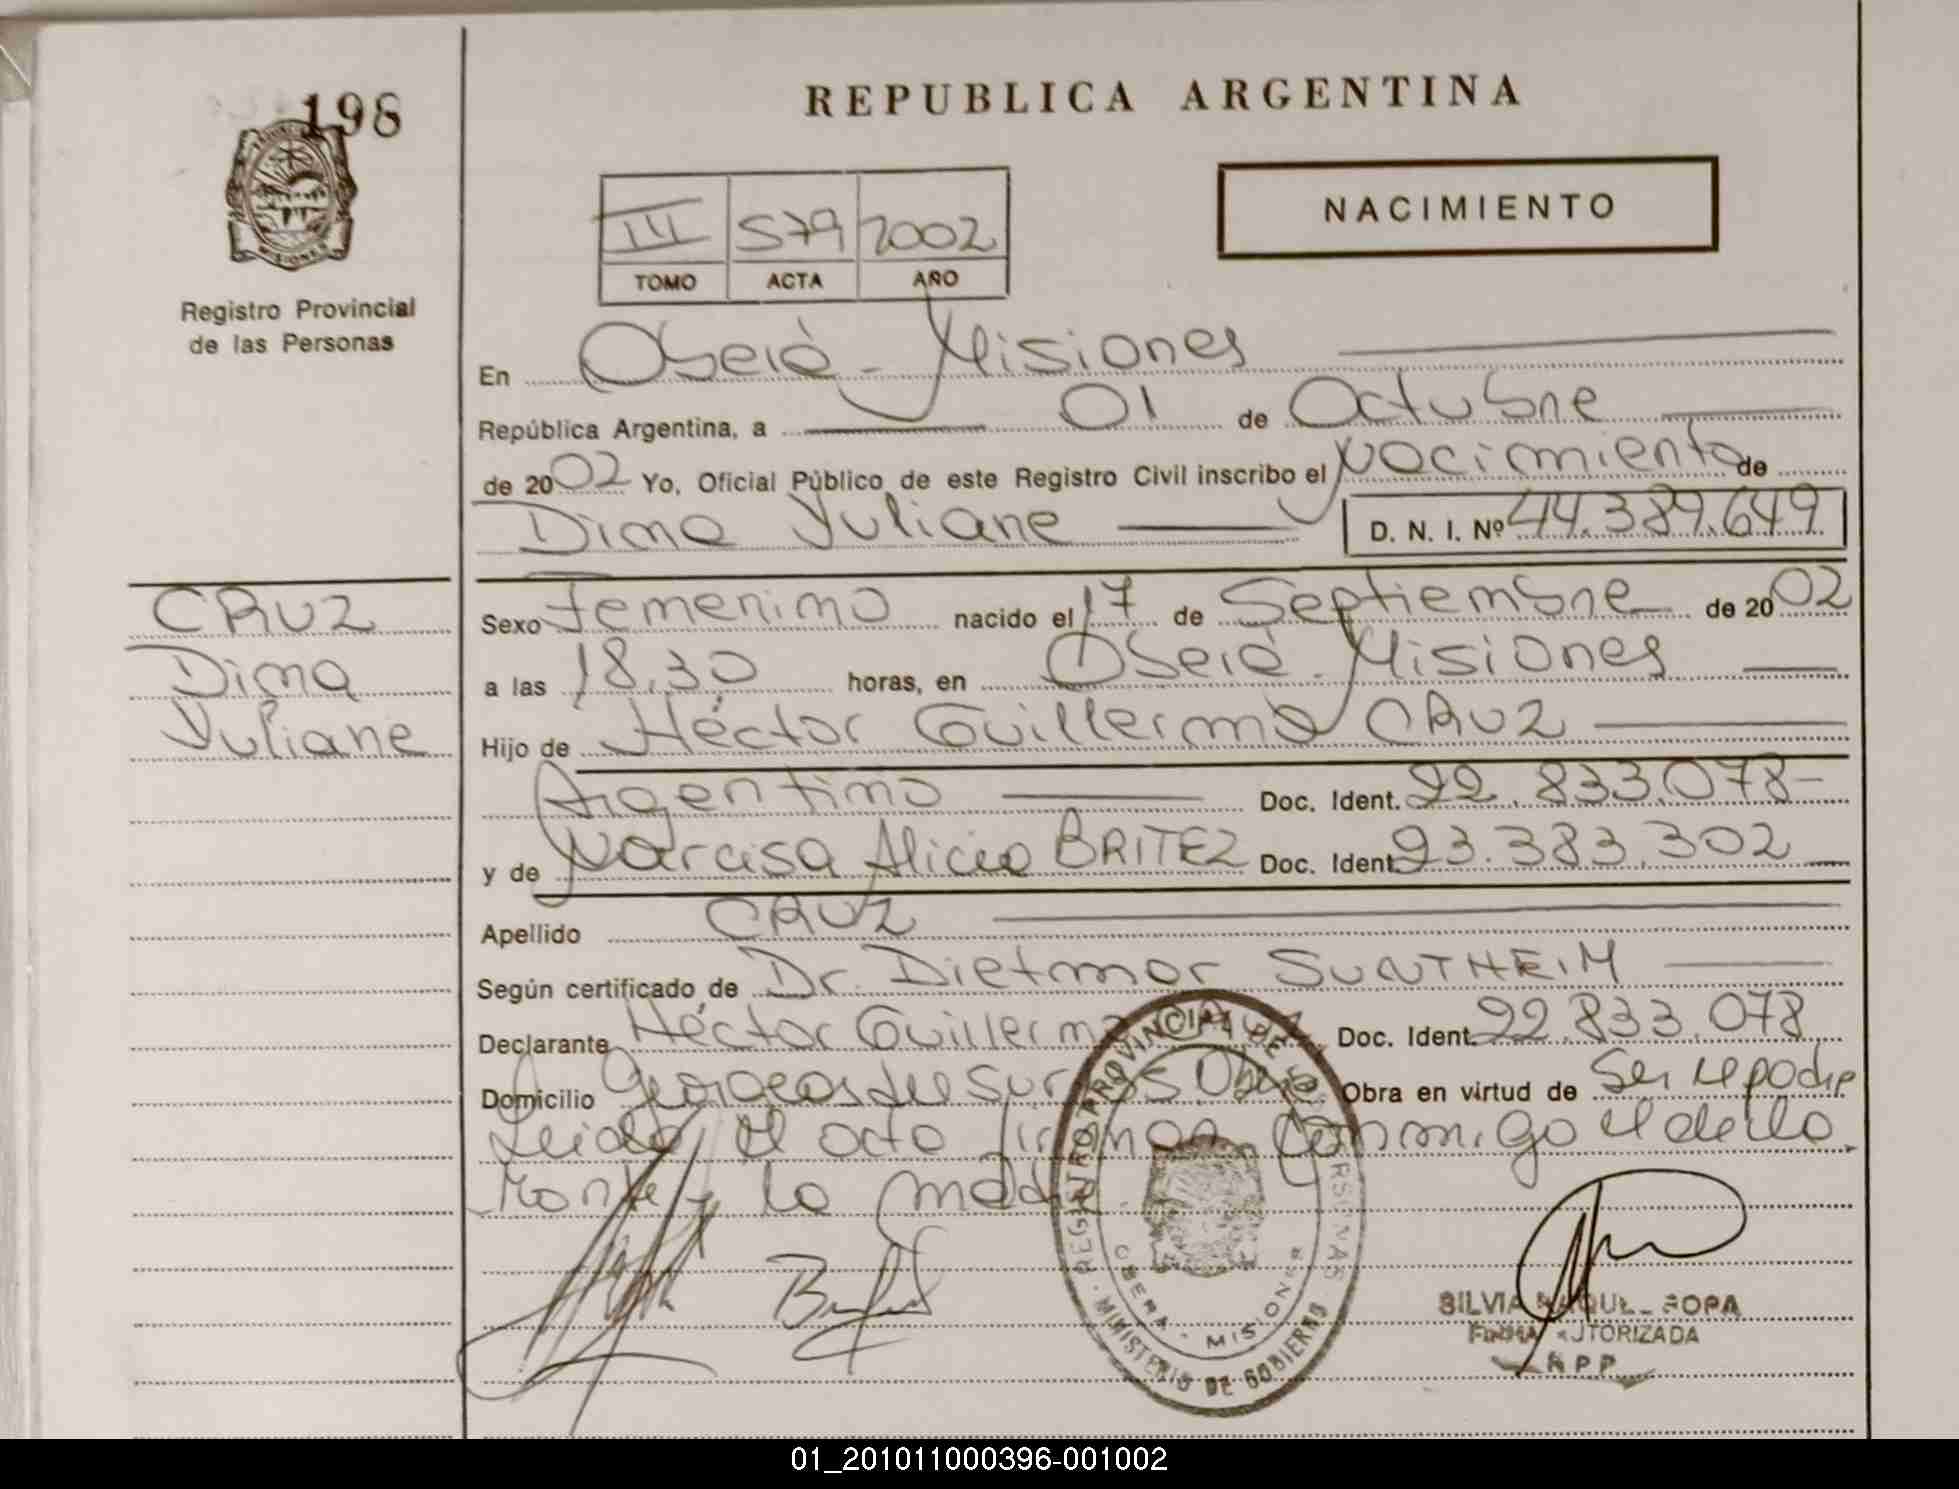 198
REPUBLICA ARGENTINA
NACIMIENTO
III 579 2002
TOMO ACTA AÑO
MISIONES
Registro Provincial
de las Personas
En Oberá - Misiones
República Argentina, a 01 de Octubre
de 2002 Yo, Oficial Público de este Registro Civil inscribo el Nacimiento de
Dima Yuliane D. N. I. Nº 44.389.649
CRUZ
Dima
Yuliane
Sexo Femenino nacido el 17 de Septiembre de 2002
a las 18,30 horas, en Oberá. Misiones
Hijo de Héctor Guillermo CRUZ
Argentino Doc. Ident. 22.833.078-
y de Narcisa Alicia BRITEZ Doc. Ident. 93.383.302
Apellido CRUZ
Según certificado de Dr. Dietmar SUNTHEIM
Declarante Héctor Guillermo Doc. Ident. 22.833.078
Domicilio del Sur Obra en virtud de Ser el padre
Leída el acta firman conmigo el decla
rante y la madre
REGISTRO PROVINCIAL DE LAS PERSONAS
OBERA - MISIONES
MINISTERIO DE GOBIERNO
SILVIA RAQUEL
FIRMA AUTORIZADA
R P P
01_201011000396-001002